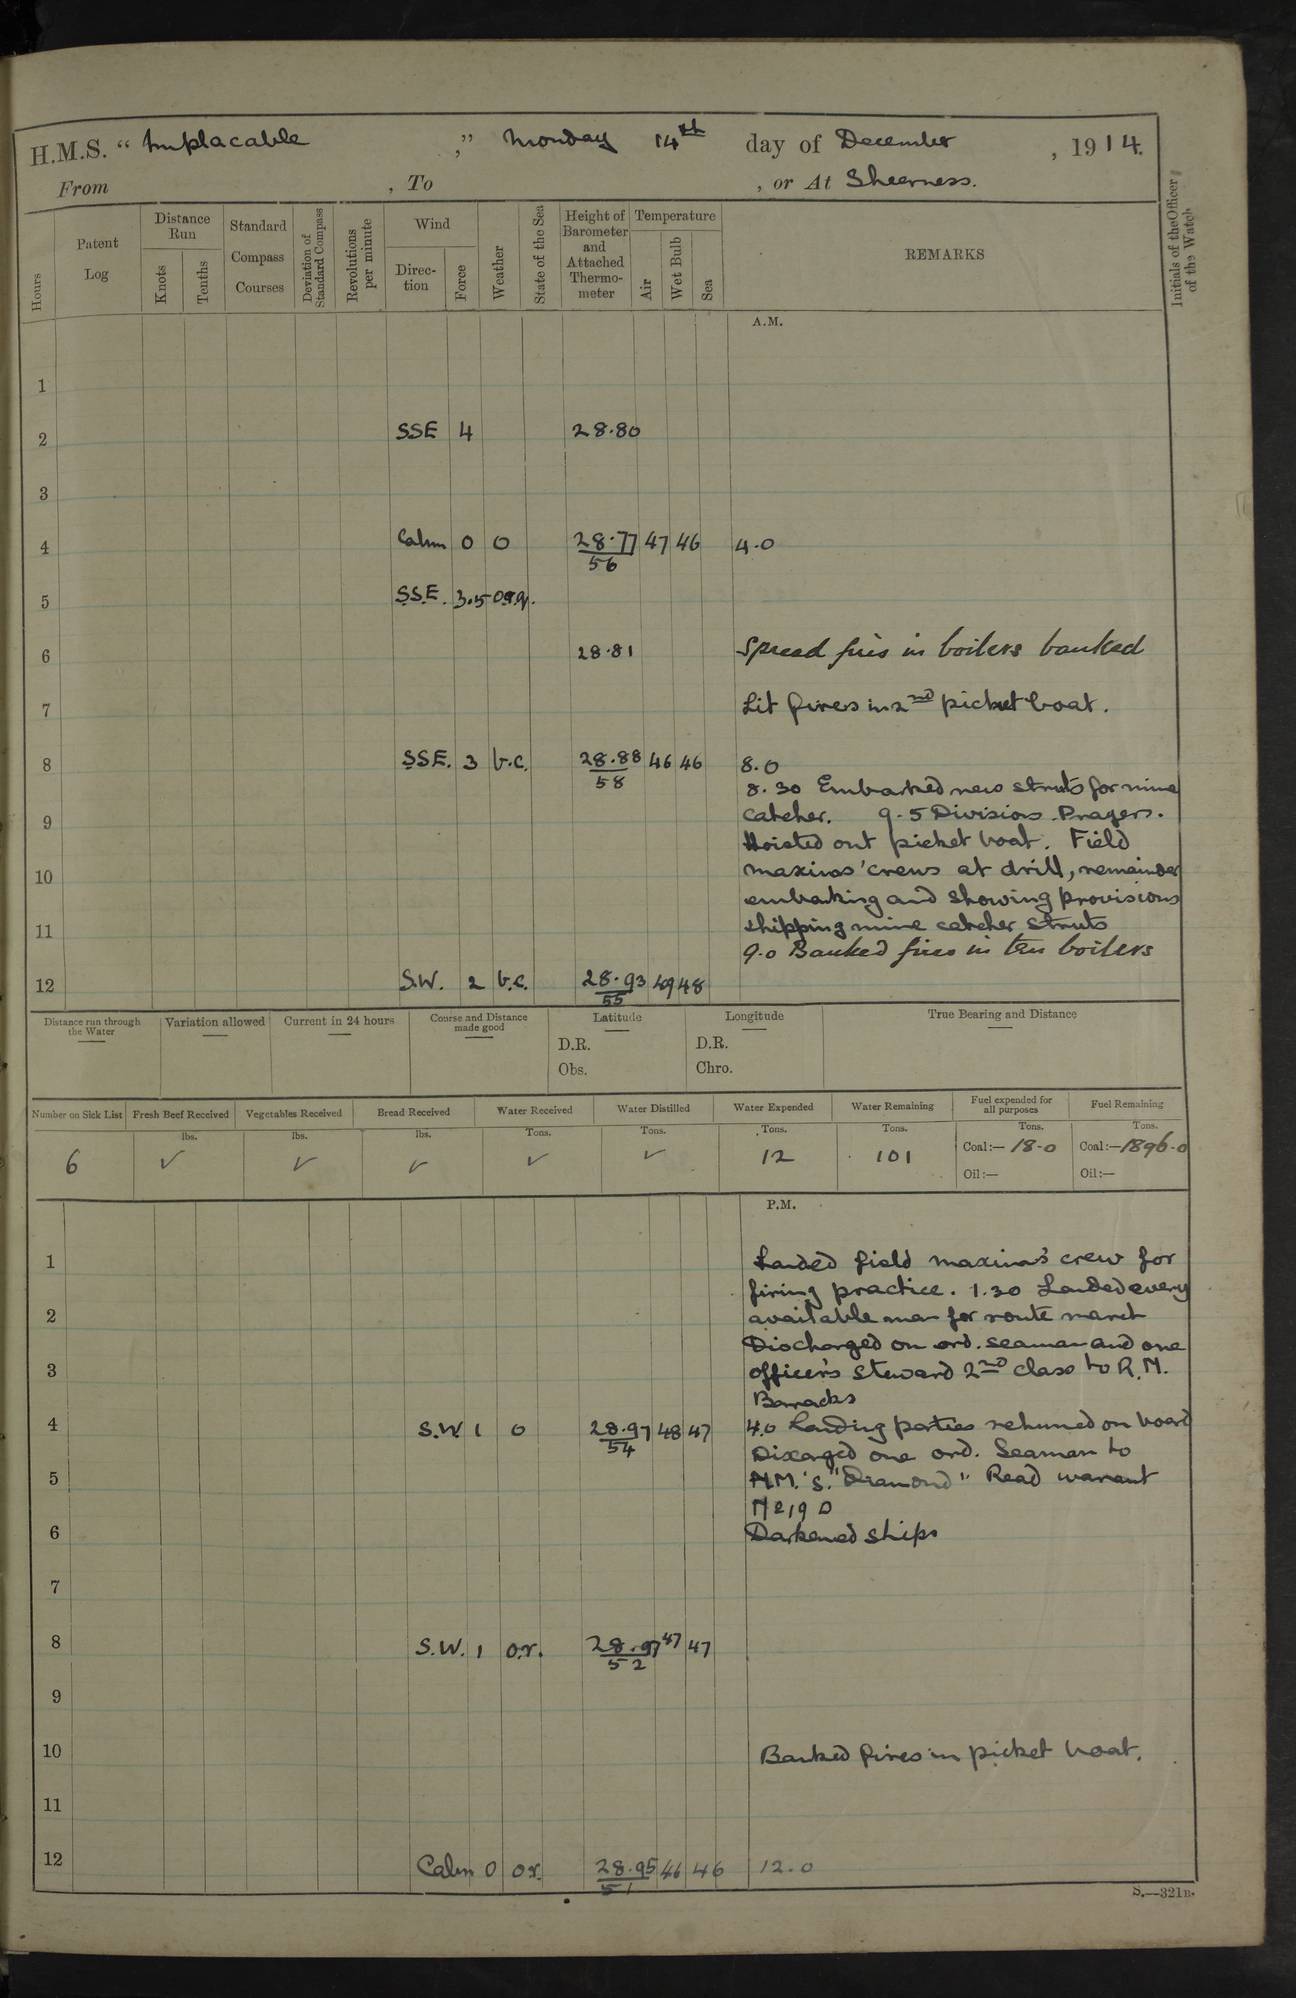 H.M.S. “ Implacable ,” Monday 14th day of December , 1914.
From , To , or At Sheerness.
Hours
Patent Log
Distance Run
Knots
Tenths
Standard Compass Courses
Deviation of Standard Compass
Revolutions per minute
Wind
Direc-tion
Force
Weather
State of the Sea
Height of Barometer and Attached Thermo-meter
Temperature
Air
Wet Bulb
Sea
REMARKS
Initials of the Officer of the Watch
A.M.
1
2 SSE 4 28.80
3
4 Calm 0 0 28.77 47 46 4.0
56
5 S.S.E. 3.5 o.r.q.
6 28.81 Spread fires in boilers banked
7 Lit fires in 2nd picket boat.
8 SSE. 3 b.c. 28.88 46 46 8.0
58
8.30 Embarked new struts for mine
9 catcher. 9-5 Divisions. Prayers.
Hoisted out picket boat. Field
10 maxims' crews at drill, remainder
embarking and showing provisions
11 shipping mine catcher struts
9.0 Banked fires in ten boilers
12 S.W. 2 b.c. 28.93 49 48
55
Distance run through the Water
Variation allowed
Current in 24 hours
Course and Distance made good
Latitude
D.R.
Obs.
Longitude
D.R.
Chro.
True Bearing and Distance
Number on Sick List
Fresh Beef Received
Vegetables Received
Bread Received
Water Received
Water Distilled
Water Expended
Water Remaining
Fuel expended for all purposes
Fuel Remaining
lbs. lbs. lbs. Tons. Tons. Tons. Tons. Tons. Tons.
6 ✓ ✓ ✓ ✓ ✓ 12 101 Coal:— 18.0 Coal:—1896.0
Oil:— Oil:—
P.M.
1 Landed field maxims' crew for
firing practice. 1.30 Landed every
2 available man for route march
Discharged on ord. seaman and one
3 officer's steward 2nd class to R.M.
Barracks
4 S.W. 1 0 28.97 48 47 4.0 Landing parties returned on board
54
Dixarged one ord. Seaman to
5 H.M.'S. "Diamond" Read warrant
No 190
6 Darkened ships
7
8 S.W. 1 o.r. 28.97 47 47
52
9
10 Banked fires in picket boat.
11
12 Calm 0 o.r. 28.95 46 46 12.0
51
S.—321B.